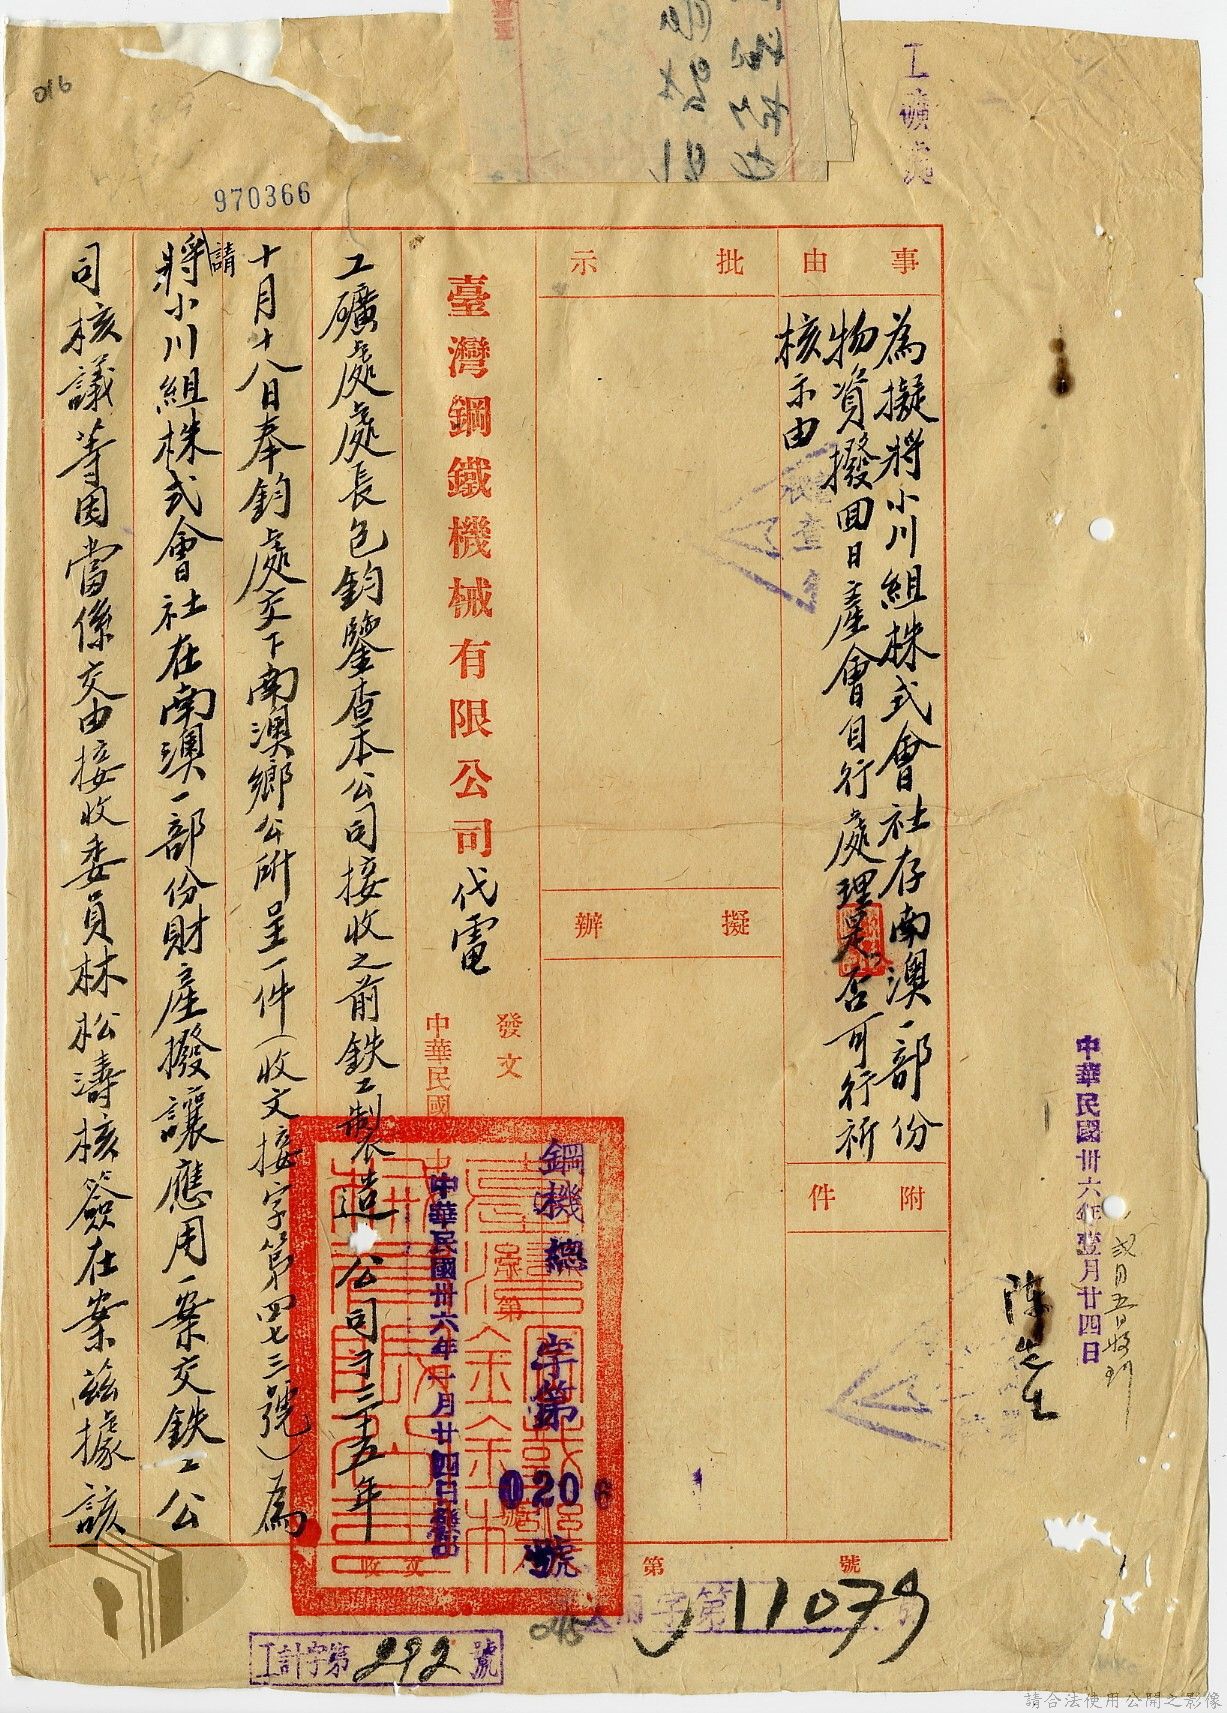 016
工礦處
970366
事由
為擬將小川組株式會社存南澳一部份
物資撥回日產會自行處理是否可行祈
核示由
批示
擬辦
附件
臺灣鋼鐵機械有限公司代電
發文
中華民國
工礦處處長包鈞鑒查本公司接收之前鉄工製造公司于三十五年
十月十八日奉鈞處交下南澳鄉公所呈一件(收文接字第四七三號)為
請
將小川組株式會社在南澳一部份財產撥讓應用一案交鉄工公
司核議等因當係交由接收委員林松濤核簽在案茲據該
鋼機總字第0206號
中華民國卅六年一月廿四日發出
中華民國卅六年壹月廿四日
陳先生
收文
第
號
字第11079
工計字第292號
請合法使用公開之影像